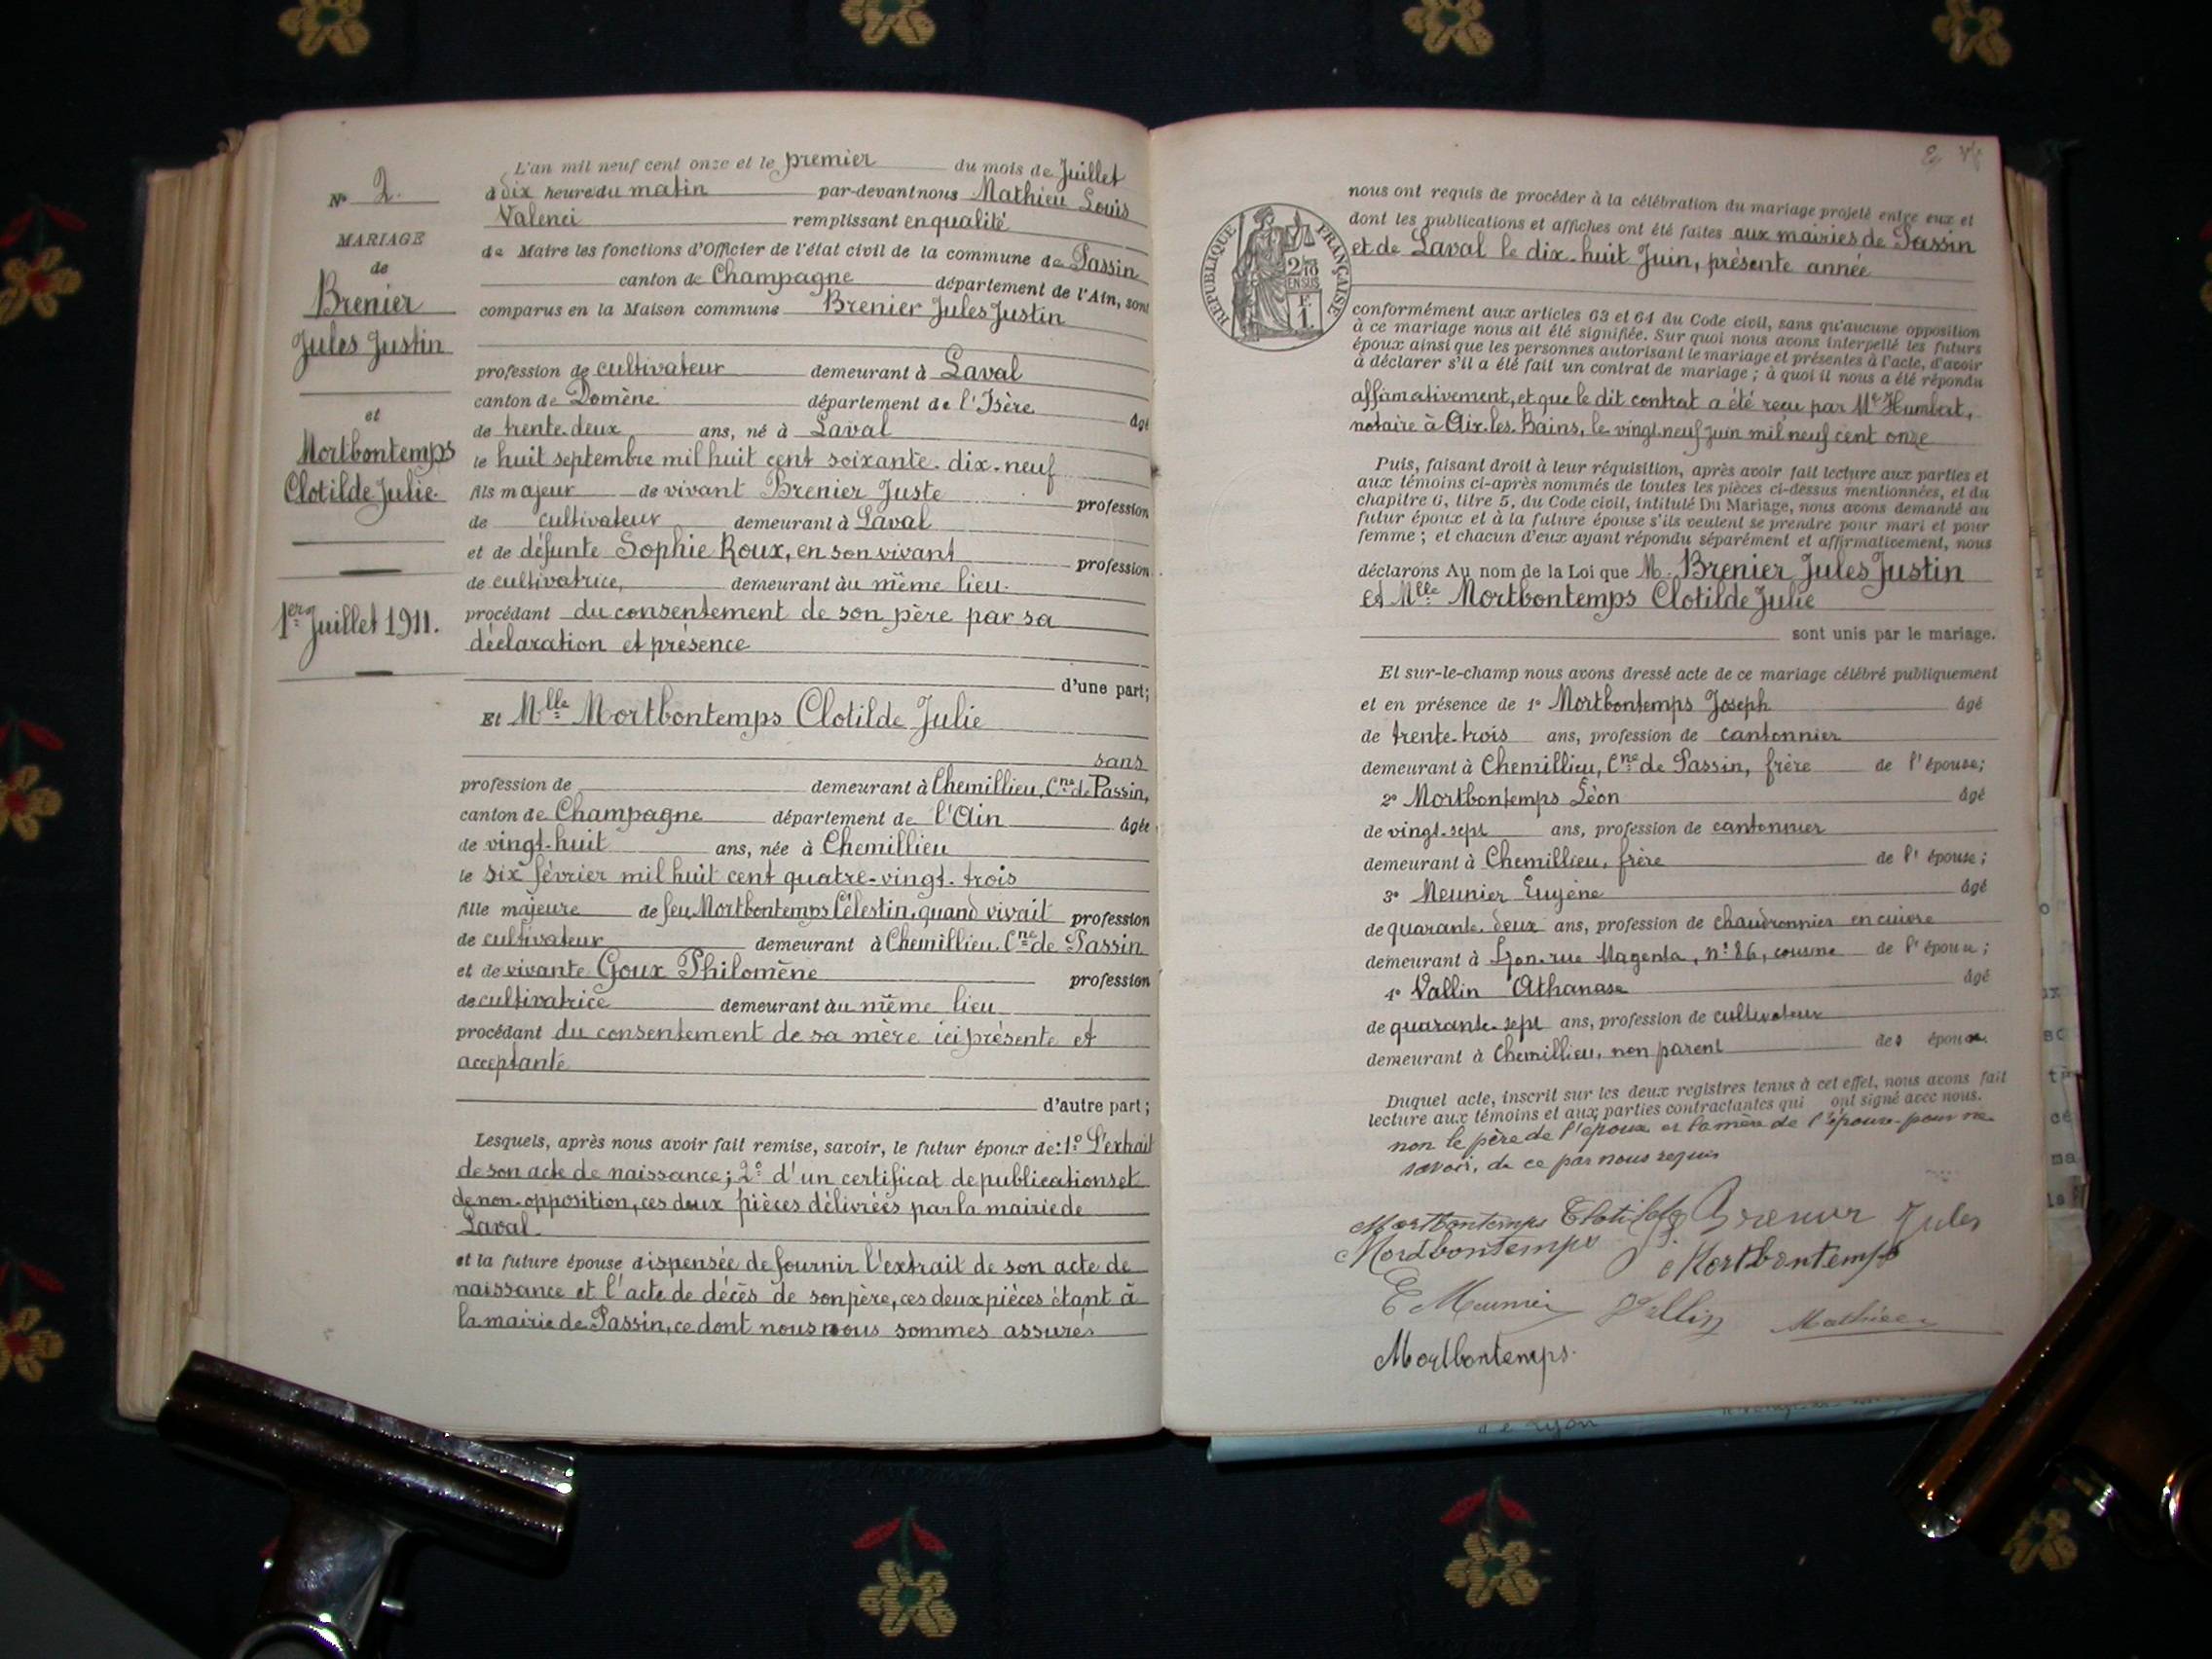 N° 2.
MARIAGE
de
Brenier
Jules Justin
et
Mortbontemps
Clotilde Julie.
1er Juillet 1911.
L'an mil neuf cent onze et le premier du mois de Juillet
à dix heure du matin par-devant nous Mathieu Louis
Valenci remplissant en qualité
de Maire les fonctions d'Officier de l'état civil de la commune de Passin
canton de Champagne département de l'Ain, sont
comparus en la Maison commune Brenier Jules Justin
profession de cultivateur demeurant à Laval
canton de Domène département de l'Isère âgé
de trente-deux ans, né à Laval
le huit septembre mil huit cent soixante-dix-neuf
fils majeur de vivant Brenier Juste profession
de cultivateur demeurant à Laval
et de défunte Sophie Roux, en son vivant profession
de cultivatrice, demeurant au même lieu.
procédant du consentement de son père par sa
déclaration et présence
d'une part;
Et Mlle Mortbontemps Clotilde Julie
sans
profession de demeurant à Chemillieu, Cne de Passin,
canton de Champagne département de l'Ain âgée
de vingt-huit ans, née à Chemillieu
le six février mil huit cent quatre-vingt-trois
fille majeure de feu Mortbontemps Célestin, quand vivait profession
de cultivateur demeurant à Chemillieu Cne de Passin
et de vivante Goux Philomène profession
de cultivatrice demeurant au même lieu
procédant du consentement de sa mère ici présente et
acceptante
d'autre part;
Lesquels, après nous avoir fait remise, savoir, le futur époux de: 1° L'extrait
de son acte de naissance; 2° d'un certificat de publications et
de non-opposition, ces deux pièces délivrées par la mairie de
Laval
et la future épouse dispensée de fournir l'extrait de son acte de
naissance et l'acte de décès de son père, ces deux pièces étant à
la mairie de Passin, ce dont nous nous sommes assurés
RÉPUBLIQUE FRANÇAISE
2/10
EN SUS
F.
1
nous ont requis de procéder à la célébration du mariage projeté entre eux et
dont les publications et affiches ont été faites aux mairies de Passin
et de Laval le dix-huit Juin, présente année
conformément aux articles 63 et 64 du Code civil, sans qu'aucune opposition
à ce mariage nous ait été signifiée. Sur quoi nous avons interpellé les futurs
époux ainsi que les personnes autorisant le mariage et présentes à l'acte, d'avoir
à déclarer s'il a été fait un contrat de mariage; à quoi il nous a été répondu
affirmativement, et que le dit contrat a été reçu par Me Humbert,
notaire à Aix-les-Bains, le vingt-neuf juin mil neuf cent onze
Puis, faisant droit à leur réquisition, après avoir fait lecture aux parties et
aux témoins ci-après nommés de toutes les pièces ci-dessus mentionnées, et du
chapitre 6, titre 5, du Code civil, intitulé Du Mariage, nous avons demandé au
futur époux et à la future épouse s'ils veulent se prendre pour mari et pour
femme; et chacun d'eux ayant répondu séparément et affirmativement, nous
déclarons Au nom de la Loi que M. Brenier Jules Justin
et Mlle Mortbontemps Clotilde Julie
sont unis par le mariage.
Et sur-le-champ nous avons dressé acte de ce mariage célébré publiquement
et en présence de 1° Mortbontemps Joseph âgé
de trente-trois ans, profession de cantonnier
demeurant à Chemillieu, Cne de Passin, frère de l'épouse;
2° Mortbontemps Léon âgé
de vingt-sept ans, profession de cantonnier
demeurant à Chemillieu, frère de l'épouse;
3° Meunier Eugène âgé
de quarante-deux ans, profession de chaudronnier en cuivre
demeurant à Lyon rue Magenta, n° 86, cousine de l'épouse;
4° Vallin Athanase âgé
de quarante-sept ans, profession de cultivateur
demeurant à Chemillieu, non parent des époux.
Duquel acte, inscrit sur les deux registres tenus à cet effet, nous avons fait
lecture aux témoins et aux parties contractantes qui ont signé avec nous.
non le père de l'époux et la mère de l'épouse pour ne
savoir, de ce par nous requis
Mortbontemps Clotilde Brenier Jules
Mortbontemps J. Mortbontemps
E Meunier Vallin Mathieu
Mortbontemps.
de Lyon